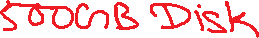 500GB Disk